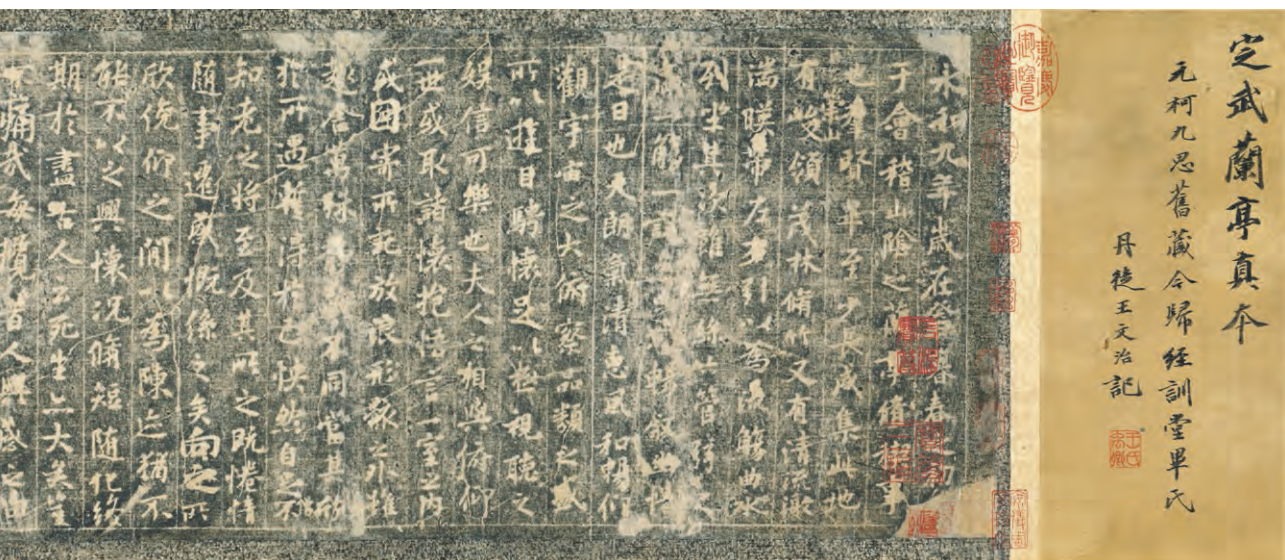 定武蘭亭真本
元柯九思舊藏今歸經訓堂畢氏
丹徒王文治記
嘉慶御覽之寶
永和九年歲在春
于會稽山陰之亭脩稧事
也羣賢畢至少長咸集此地
有崇山峻領茂林脩竹又有清流激
湍暎帶左右引以為流觴曲水
列坐其次雖無絲竹管
一觴一詠暢敘幽情
是日也天朗氣清惠風和暢仰
觀宇宙之大俯察品類之盛
所以遊目騁懷足以極視聽之
娛信可樂也夫人之相與俯仰
一世或取諸懷抱悟言一室之內
或因寄所託放浪形骸之外雖
舍萬殊不同當其欣
於所遇暫得於己快然自足不
知老之將至及其所之既惓情
隨事遷感慨係之矣向之所
欣俛仰之間以為陳迹猶不
能不以之興懷況脩短隨化終
期於盡古人云死生亦大矣豈
不痛哉每攬昔人興感之由